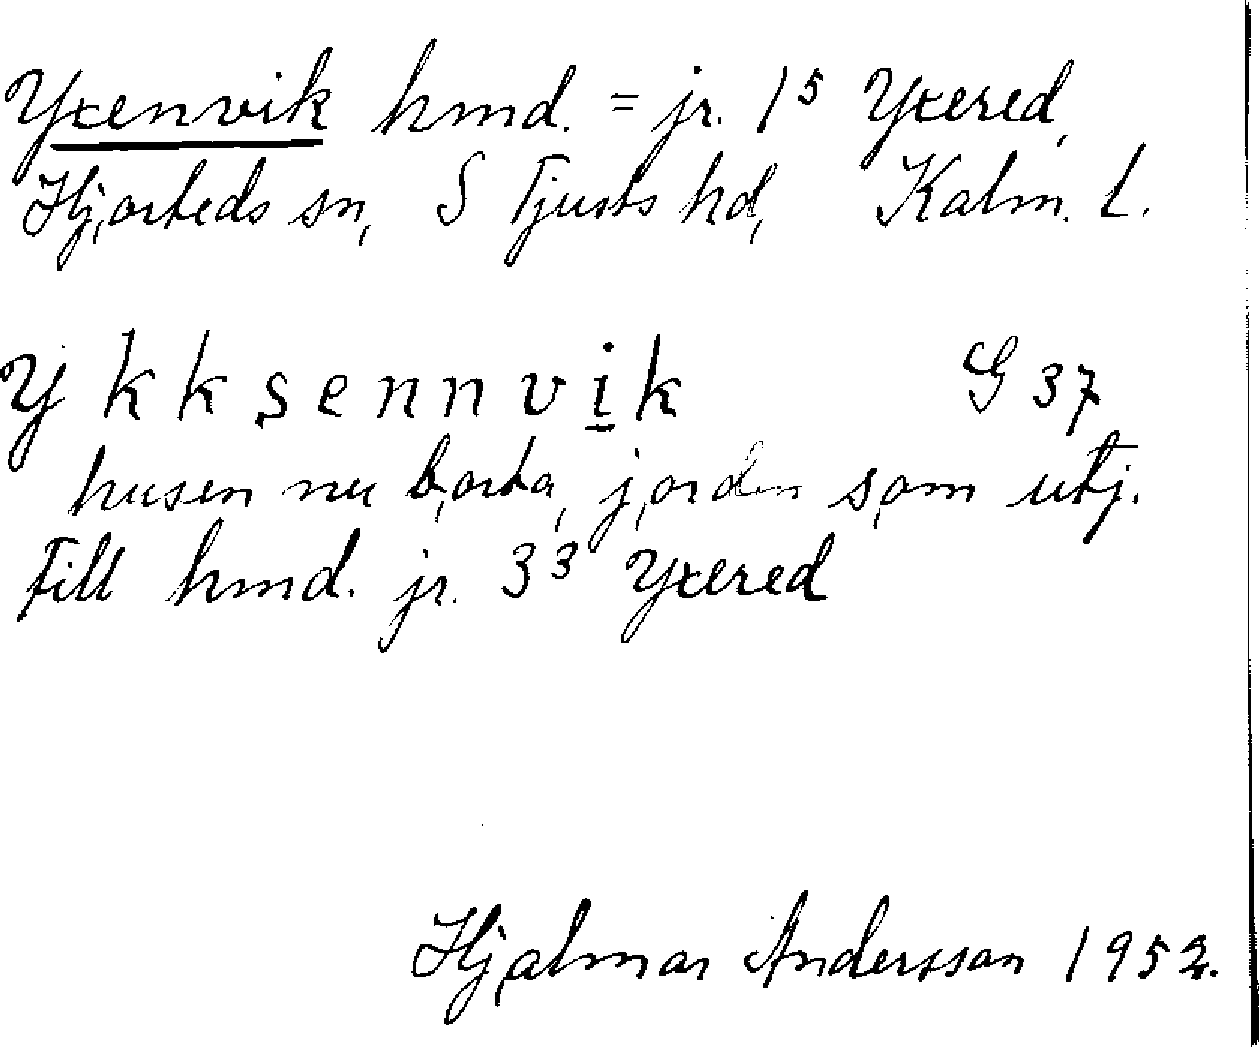 Yxenvik hmd. = jr. 1⁵ Yxered,
Hjorteds sn, S Tjusts hd, Kalm. L.
Y k k s e n n v i k G 37
husen nu borta, jorden som utj.
till hmd. jr. 3³ Yxered
Hjalmar Andersson 1952.